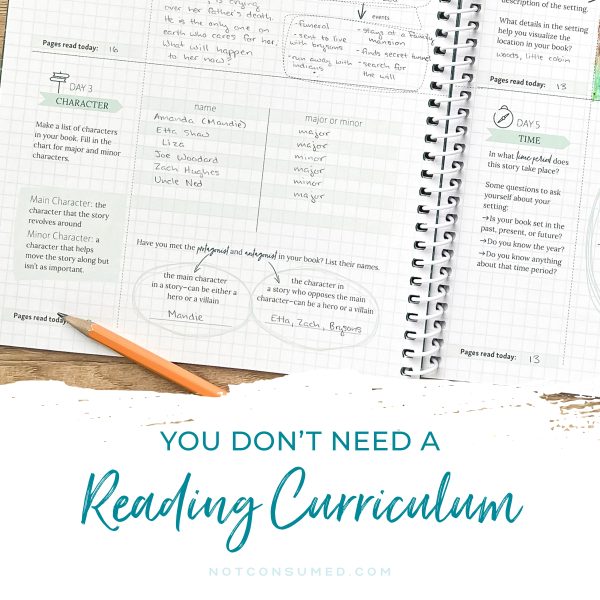 is crying
over her father's death.
He is the only one on
earth who cares for her.
What will happen
to her now?
Pages read today: 16
events
-funeral
-sent to live
with brysons
-run away with
indians
-stay at a family
mansion
-finds secret tunnel
-search for
the will
description of the setting.
What details in the setting
help you visualize the
location in your book?
woods, little cabin
Pages read today: 13
DAY 3
CHARACTER
Make a list of characters
in your book. Fill in the
chart for major and minor
characters.
Main Character: the
character that the story
revolves around
Minor Character: a
character that helps
move the story along but
isn't as important.
Pages read today:
name major or minor
Amanda (Mandie) major
Etta Shaw major
Liza minor
Joe Woodard major
Zach Hughes minor
Uncle Ned major
Have you met the protagonist and antagonist in your book? List their names.
the main character
in a story-can be either a
hero or a villain
Mandie
the character in
a story who opposes the main
character-can be a hero or a villain
Etta, Zach, Brysons
DAY 5
TIME
In what time period does
this story take place?
Some questions to ask
yourself about your
setting:
→Is your book set in the
past, present, or future?
→Do you know the year?
→Do you know anything
about that time period?
Pages read today: 13
YOU DON'T NEED A
Reading Curriculum
NOTCONSUMED.COM